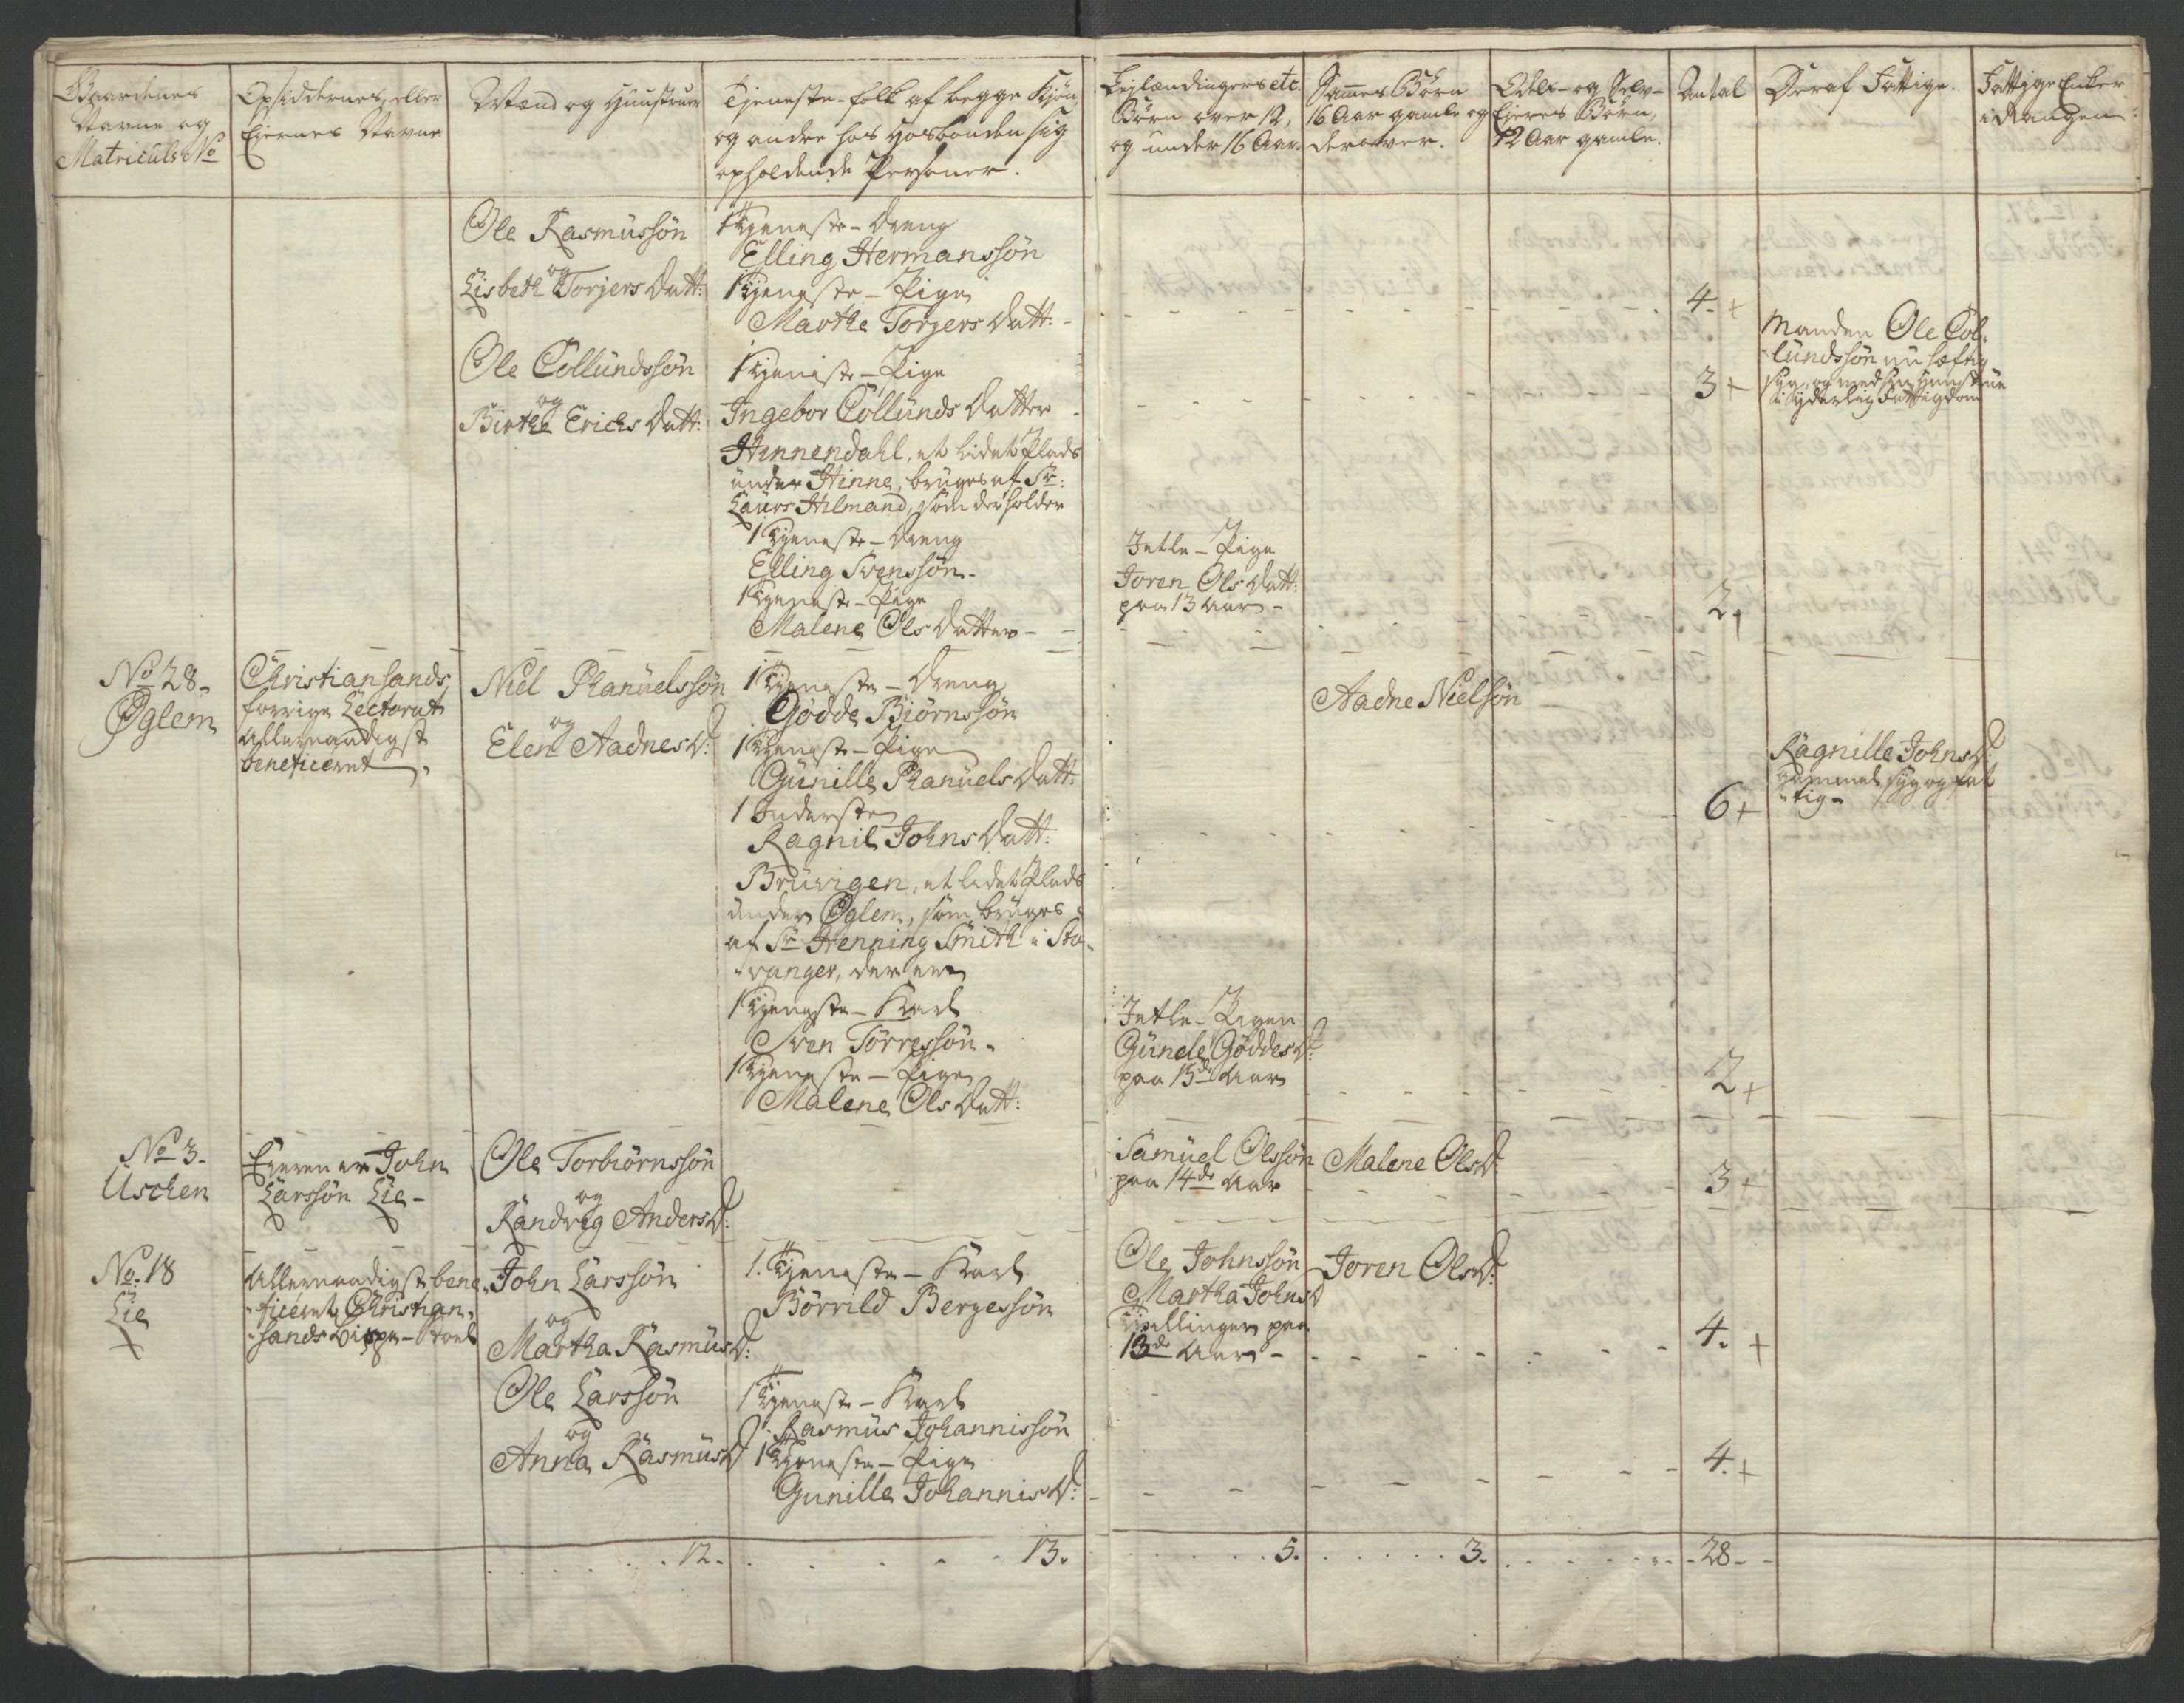 Gaardenes
Navne og
Matriculs No
Opsiddernes, eller
Ejernes Navne
Mænd og Hustruer
Tjeneste-folk af begge Kjøn
og andre hos Hosbonden sig
opholdende Personer.
Lejlændingers etc.
Børn over 12,
og under 16 Aar.
Sammes Børn
16 Aar gamle og
derover.
Odels- og Selv-
Ejeres Børn,
12 Aar gamle.
Antal
Deraf Fattige.
Fattige Enker
i Rangen
Ole Rasmussøn
og
Lisbeth Torjers Datt:
1 Tjeneste-Dreng
Elling Hermanssøn
1 Tjeneste-Pige
Marthe Torgers Datt:
4. +
Ole Collundssøn
og
Birthe Erichs Datt:
1 Tjeneste-Pige
Ingebor Collunds Datter
3 +
Manden Ole Col-
lundssøn nu
syg, og med sin Hustrue
i yderlig Fattigdom
Hinnendahl, et lidet Plads
under Hinne, bruges af Sr:
Laurs Hilmand, som der holder
1 Tjeneste-Dreng
Elling Svenssøn.
1 Tjeneste-Pige
Malene Ols Datter
Jetle-Pige
Joren Ols Datt:
paa 13 Aar
2 +
No 28.
Øglem
Christiansands
forrige Lectorat
allernaadigst
beneficeret
Niel Phanuelssøn
og
Elen AadnesD:
1 Tjeneste-Dreng
Gødde Biørnssøn
1 Tjeneste-Pige
Gunille Phanuels Datt:
1 Inderste
Ragnil Johns Datt:
Aadne Nielsøn
6 +
Ragnille JohnsD:
gammel, syg og fat
tig
Bruvigen, et lidet Plads
under Øglem, som bruges
af Sr Henning Smith i Sta-
vanger, der er
1 Tjeneste-Karl
Sven Tørressøn.
1 Tjeneste-Pige
Malene Ols Datt:
Jetle-Pigen
Gunele GøddesD:
paa 15de Aar
2 +
No 3.
Uschen
Ejeren er John
Larssøn Lie
Ole Torbiørnssøn
og
Randvig AndersD:
Samuel Olssøn
paa 14de Aar
Malene OlsD:
3 +
No. 18
Lie
Allernaadigst bene
ficeret Christian-
sands Bispe-Stoel
John Larssøn
og
Martha RasmusD:
1. Tjeneste-Karl
Børrild Bergessøn
Ole Johnssøn
Martha JohnsD
Tvillinger paa
13de Aar
Joren OlsD:
4. +
Ole Larssøn
og
Anna RasmusD
1 Tjeneste-Karl
Rasmus Johannissøn
1 Tjeneste-Pige
Gunille JohannisD:
4. +
12.
13.
5.
3.
28